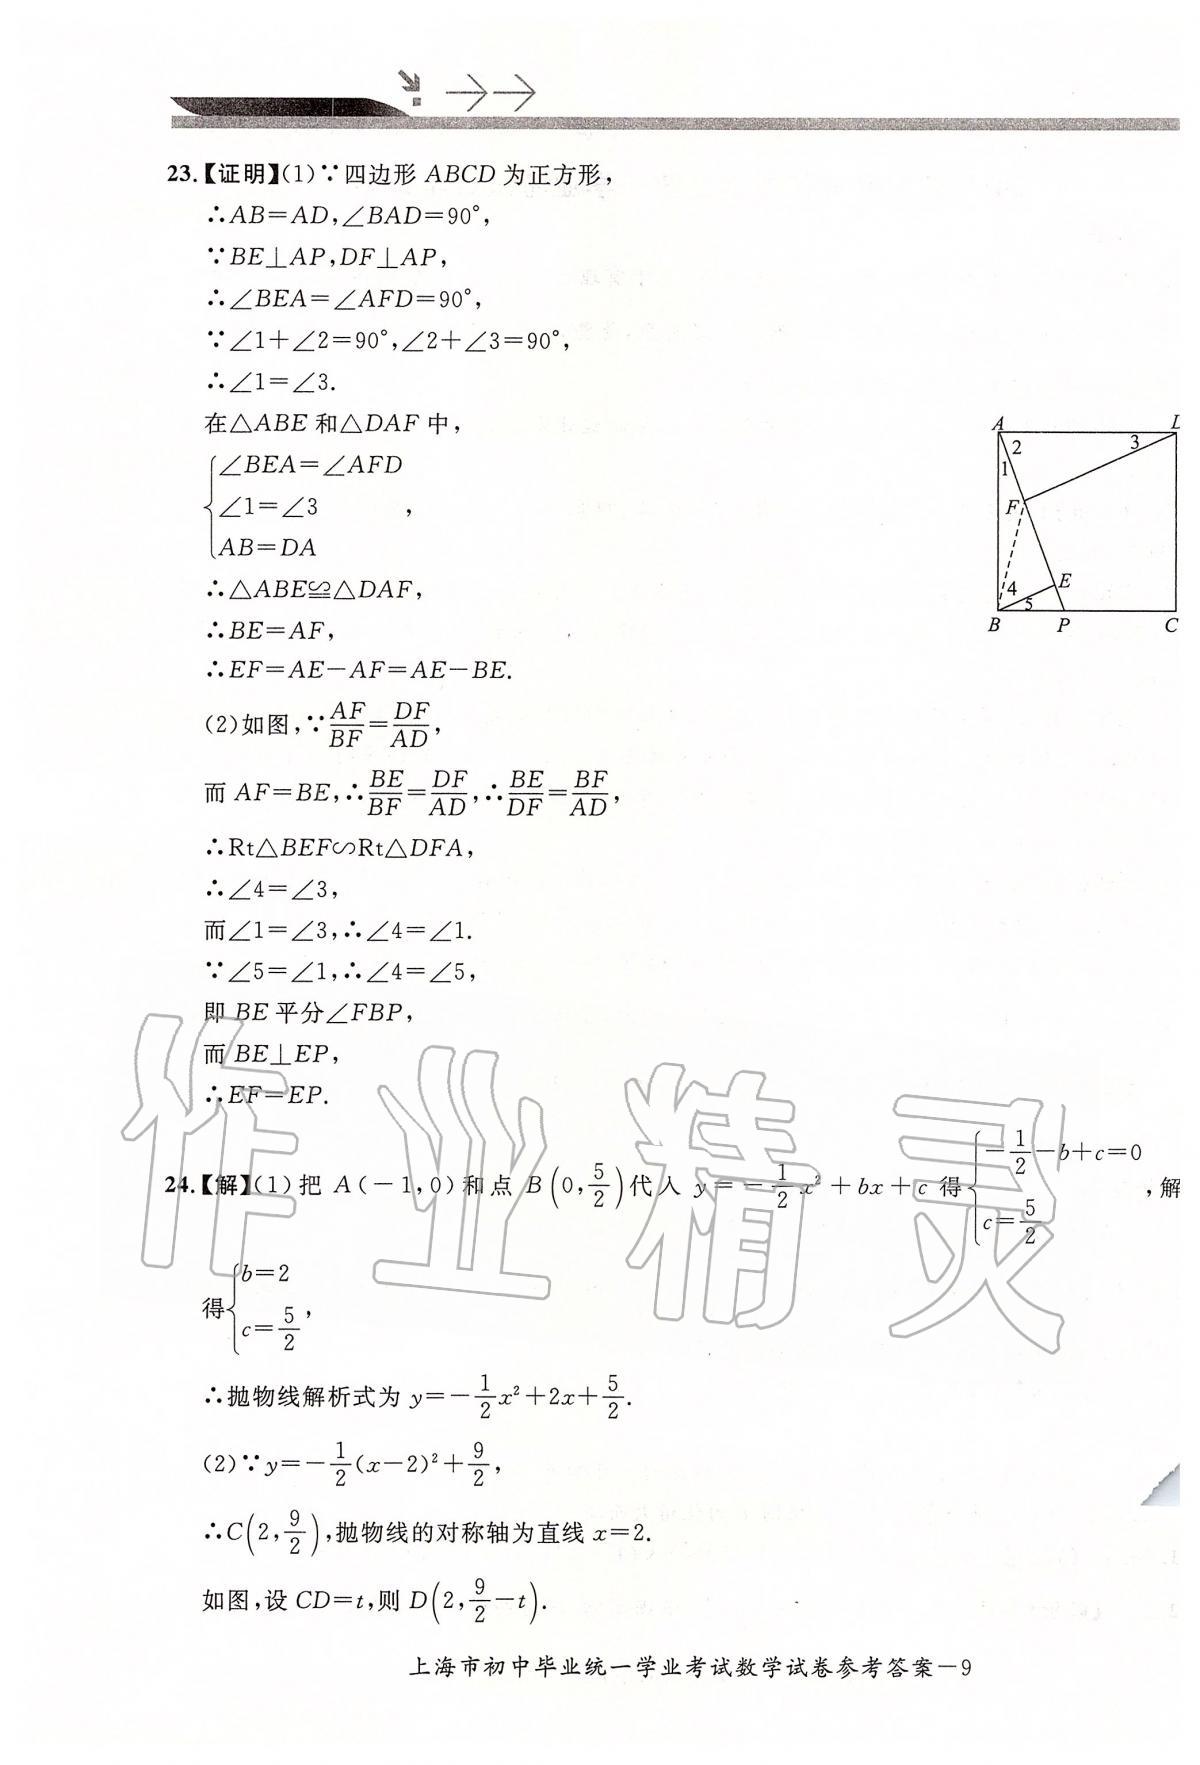 23.【证明】(1)∵四边形 ABCD 为正方形,
∴AB=AD,∠BAD=90°,
∵BE⊥AP,DF⊥AP,
∴∠BEA=∠AFD=90°,
∵∠1+∠2=90°,∠2+∠3=90°,
∴∠1=∠3.
在△ABE 和△DAF 中,
{∠BEA=∠AFD
∠1=∠3 ,
AB=DA
∴△ABE≌△DAF,
∴BE=AF,
∴EF=AE-AF=AE-BE.
(2)如图,∵AF/BF=DF/AD,
而 AF=BE,∴BE/BF=DF/AD,∴BE/DF=BF/AD,
∴Rt△BEF∽Rt△DFA,
∴∠4=∠3,
而∠1=∠3,∴∠4=∠1.
∵∠5=∠1,∴∠4=∠5,
即 BE 平分∠FBP,
而 BE⊥EP,
∴EF=EP.
A
2
3
1
F
4
E
5
B P C
24.【解】(1)把 A(-1,0)和点 B(0,5/2)代入 y=-1/2x²+bx+c 得{-1/2-b+c=0
c=5/2 ,解
得{b=2
c=5/2 ,
∴抛物线解析式为 y=-1/2x²+2x+5/2.
(2)∵y=-1/2(x-2)²+9/2,
∴C(2,9/2),抛物线的对称轴为直线 x=2.
如图,设 CD=t,则 D(2,9/2-t).
上海市初中毕业统一学业考试数学试卷参考答案-9
作业精灵